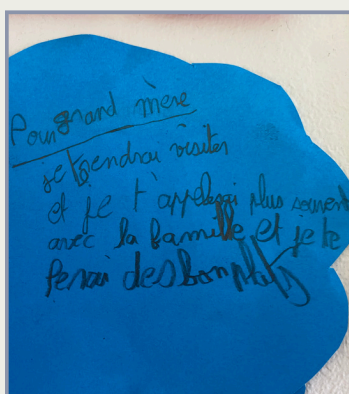 Pour grand mère
je tiendrai visiter
et je t'appelerai plus souvent
avec la famille et je te
ferai des bon plats